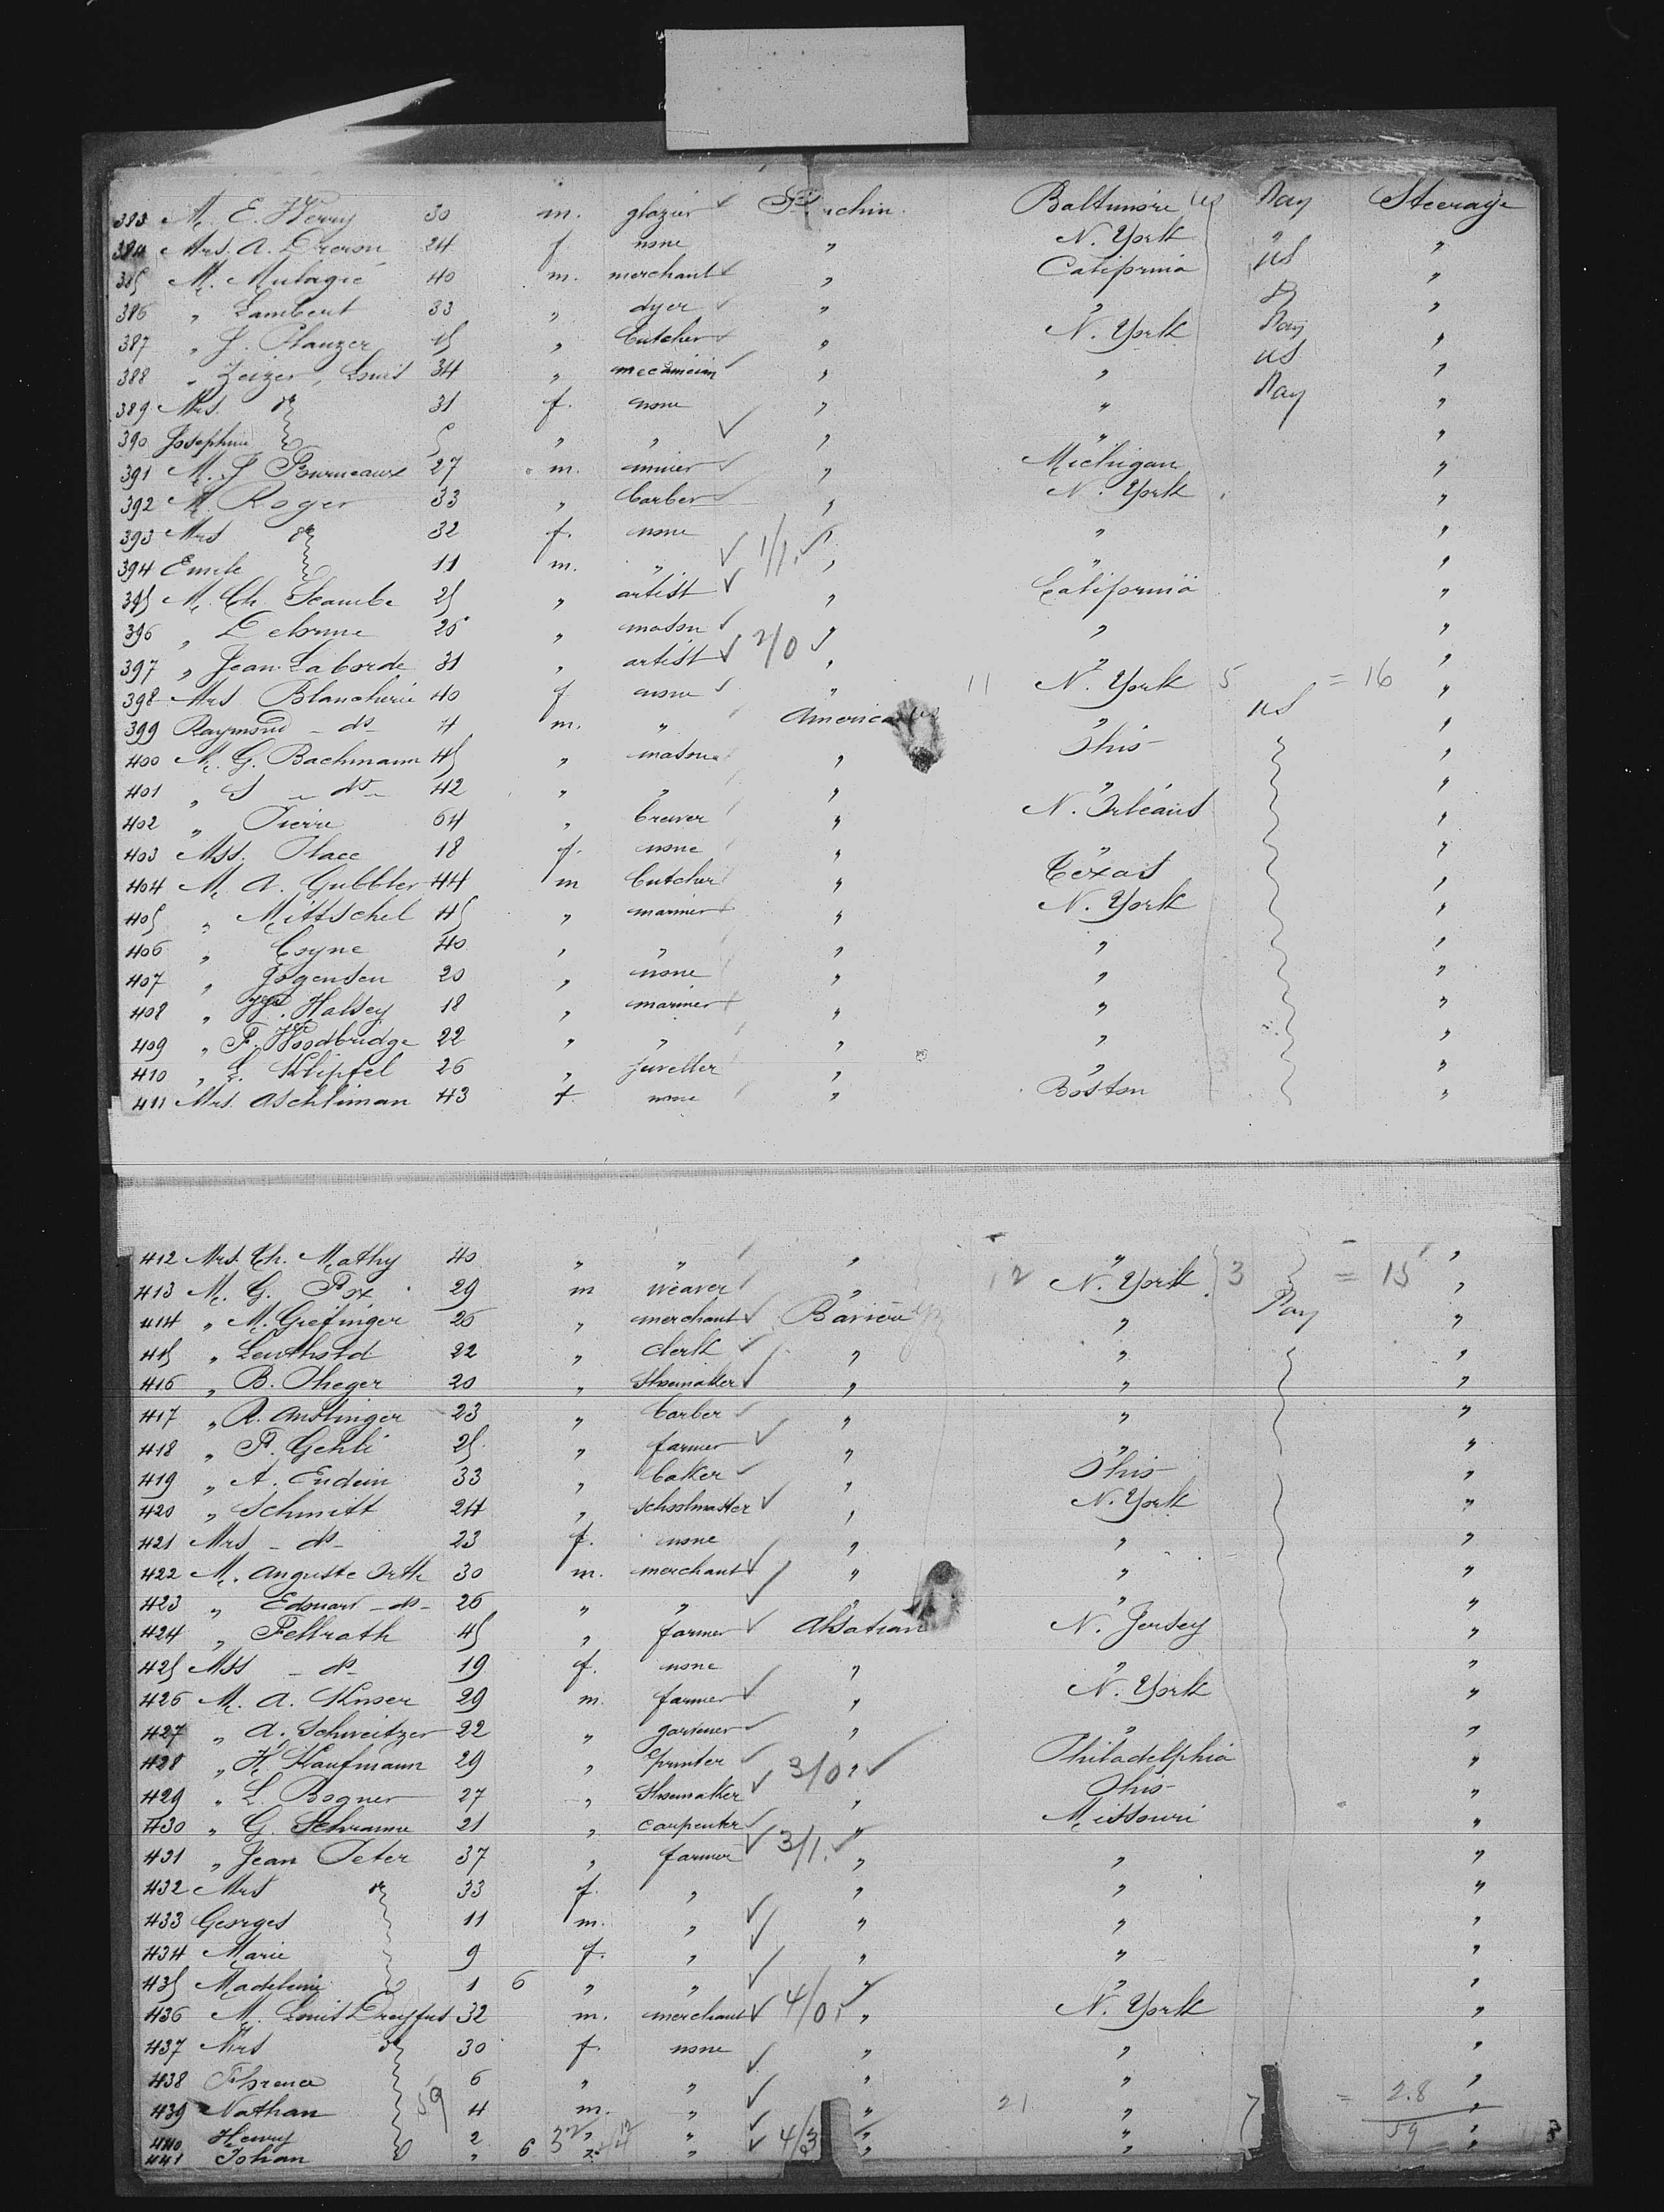 383 M. E. Werry 30 m. glazier Baltimore US Nay Steerage
384 Mrs. A. 24 f none " N. York " "
385 M. 40 m. merchant " California US "
386 " Lambert 33 " dyer " " "
387 " J. 45 " butcher " N. York Nay "
388 " Zeizer, Louis 34 " mecanician " " US "
389 Mrs. do 31 f. none " " Nay "
390 Josephine 5 " " " " "
391 M. J. 27 m. miner " Michigan "
392 M. Roger 33 " barber " N. York "
393 Mrs do 32 f. none " " "
394 Emile 11 m. " 1/1. " " "
395 M. Ch. 25 " artist " California "
396 " Delorme 26 " mason 2/0 " " "
397 " Jean Laborde 31 " artist " " "
398 Mrs. Blancherie 40 f none " 11 N. York 5 = 16 "
399 Raymond - do - 4 m. " American " US "
400 M. G. Bachmann 45 " mason " Ohio "
401 " S - do - 42 " " " " "
402 " Pierre 64 " brewer " N. Orléans "
403 Mss. Place 18 f. none " " "
404 M. A. Gubbler 44 m butcher " Texas "
405 " Mittschel 45 " mariner " N. York "
406 " Coyne 40 " " " " "
407 " Jogensen 20 " none " " "
408 " Halsey 18 " mariner " " "
409 " F. Woodbridge 22 " " " " "
410 " L. Klipfel 26 " juveller " " "
411 Mrs. Aschliman 43 f none " Boston "
412 Mrs. Ch. Mathy 40 " " " " "
413 M. G. Fox 29 m weaver " 12 N. York 3 = 15 "
414 " M. Grefinger 26 " merchant " Nay "
415 " Leuthold 22 " clerk " " "
416 " B. Pheger 20 " Shoemaker " " "
417 " R. Anstinger 23 " barber " " "
418 " F. Gehli 25 " farmer " " "
419 " A. Endein 33 " baker " Ohio "
420 " Schmitt 24 " schoolmaster " N. York "
421 Mrs - do - 23 f. none " " "
422 M. Auguste Orth 30 m. merchant " " "
423 " Edouard - do - 26 " " " " "
424 " Fellrath 45 " farmer Alsatian N. Jersey "
425 Mss - do - 19 f. none " " "
426 M. A. Knser 29 m. farmer " N. York "
427 " A. Schweitzer 22 " gardener " " "
428 " H. Kaufmann 29 " printer 3/0 " Philadelphia "
429 " L. Bogner 27 " Shoemaker " Ohio "
430 " G. Schramm 21 " carpenter " Missouri "
431 " Jean Peter 37 " farmer 3/1. " " "
432 Mrs do 33 f. " " " "
433 Georges 11 m. " " " "
434 Marie 9 f. " " " "
435 Madeleine 1 6 " " " " "
436 M. Louis Dreyfus 32 m. merchant 4/0 " N. York "
437 Mrs do 30 f. none " " "
438 Florence 6 " " " " "
439 Nathan 59 4 m. " " 21 " 7 = 28 "
440 Henry 2 " " 4/3 " " 59 "
441 Johan " 6 " " " " "